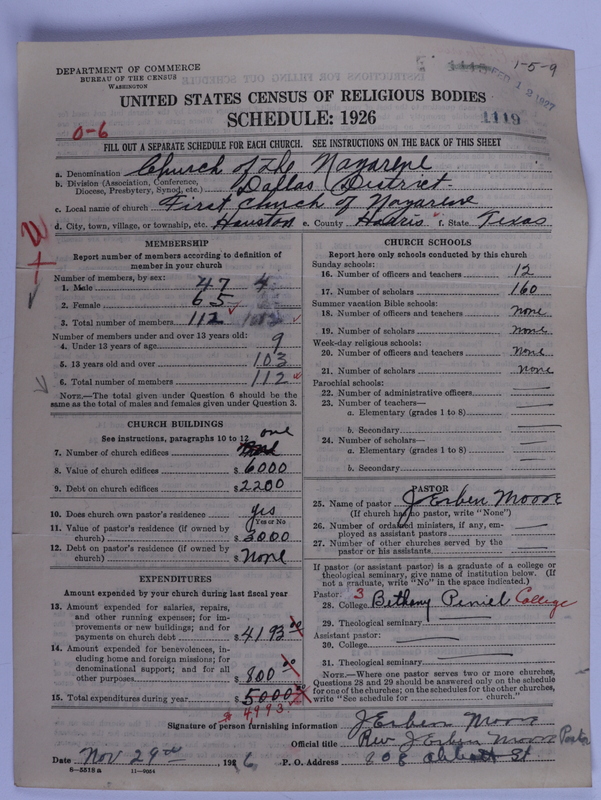 DEPARTMENT OF COMMERCE
BUREAU OF THE CENSUS
WASHINGTON
1-5-9
FEB 12 1927
UNITED STATES CENSUS OF RELIGIOUS BODIES
SCHEDULE: 1926
1119
0-6
FILL OUT A SEPARATE SCHEDULE FOR EACH CHURCH. SEE INSTRUCTIONS ON THE BACK OF THIS SHEET
a. Denomination Church of the Nazarene
b. Division (Association, Conference, Diocese, Presbytery, Synod, etc.) Dallas District
c. Local name of church First Church of Nazarene
d. City, town, village, or township, etc. Houston e. County Harris f. State Texas
MEMBERSHIP
Report number of members according to definition of
member in your church
Number of members, by sex:
1. Male 47
2. Female 65
3. Total number of members 112
Number of members under and over 13 years old:
4. Under 13 years of age 9
5. 13 years old and over 103
6. Total number of members 112
NOTE.—The total given under Question 6 should be the
same as the total of males and females given under Question 3.
CHURCH BUILDINGS
See instructions, paragraphs 10 to 12
one
7. Number of church edifices
8. Value of church edifices $6000
9. Debt on church edifices $2200
10. Does church own pastor's residence? yes
Yes or No
11. Value of pastor's residence (if owned by
church) $3000
12. Debt on pastor's residence (if owned by
church) $None
EXPENDITURES
Amount expended by your church during last fiscal year
13. Amount expended for salaries, repairs,
and other running expenses; for im-
provements or new buildings; and for
payments on church debt $4193 00
14. Amount expended for benevolences, in-
cluding home and foreign missions; for
denominational support; and for all
other purposes $800
15. Total expenditures during year $5000
$ 4993
CHURCH SCHOOLS
Report here only schools conducted by this church
Sunday schools:
16. Number of officers and teachers 12
17. Number of scholars 160
Summer vacation Bible schools:
18. Number of officers and teachers none
19. Number of scholars none
Week-day religious schools:
20. Number of officers and teachers None
21. Number of scholars none
Parochial schools:
22. Number of administrative officers
23. Number of teachers—
a. Elementary (grades 1 to 8)
b. Secondary
24. Number of scholars—
a. Elementary (grades 1 to 8)
b. Secondary
PASTOR
25. Name of pastor J Erben Moore
(If church has no pastor, write "None")
26. Number of ordained ministers, if any, em-
ployed as assistant pastors
27. Number of other churches served by the
pastor or his assistants
If pastor (or assistant pastor) is a graduate of a college or
theological seminary, give name of institution below. (If
not a graduate, write "No" in the space indicated.)
Pastor: 3
28. College Bethany Peniel College
29. Theological seminary
Assistant pastor:
30. College
31. Theological seminary
NOTE.—Where one pastor serves two or more churches,
Questions 28 and 29 should be answered only on the schedule
for one of the churches; on the schedules for the other churches,
write "See schedule for church."
Signature of person furnishing information J Erben Moore
Official title Rev J Erben Moore Pastor
Date Nov 29th 1926 P. O. Address 808 St
6-5518 a 11-9064